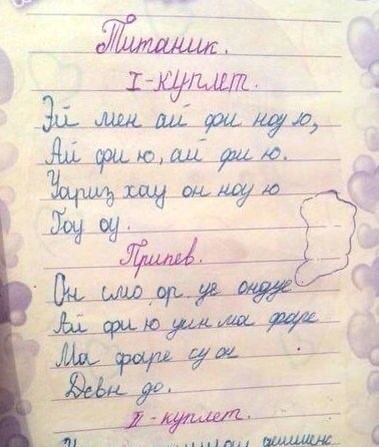 Титаник.
I-куплет.
Эй мен ай фи ноу ю,
Ай фи ю, ай фи ю.
Уариз хау он ноу ю
Гоу оу.
Припев.
Он смо ор уе
Ай фи ю уин ма фаре
Ма фаре су ου
Девн до.
II-куплет.